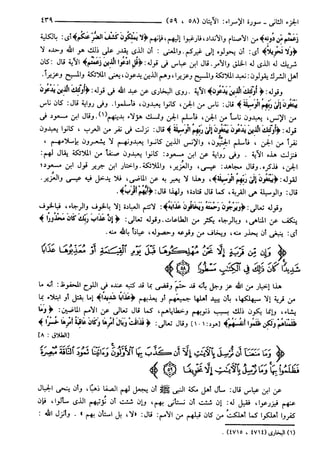 الجزء الثاني - سورة الإسراء: الآيتان (٥٨ ، ٥٩) ٤٣٩
مِن دُونِهِ﴾ من الأصنام والأنداد، فارغبوا إليهم، فإنهم ﴿فَلَا يَمْلِكُونَ كَشْفَ الضُّرِّ عَنكُمْ﴾ أي: بالكلية
﴿وَلَا تَحْوِيلًا﴾ أي: أن يحولوه إلى غيركم. والمعنى: أن الذي يقدر على ذلك هو الله وحده لا
شريك له الذي له الخلق والأمر. قال العوفي عن ابن عباس في قوله: ﴿قُلِ ادْعُوا الَّذِينَ زَعَمْتُم﴾ الآية قال: كان
أهل الشرك يقولون: نعبد الملائكة والمسيح وعزيراً، وهم الذين يدعون، يعني الملائكة والمسيح وعزيراً.
وقوله: ﴿أُولَٰئِكَ الَّذِينَ يَدْعُونَ﴾ الآية. روى البخاري عن عبد الله في قوله: ﴿أُولَٰئِكَ الَّذِينَ يَدْعُونَ
يَبْتَغُونَ إِلَىٰ رَبِّهِمُ الْوَسِيلَةَ﴾ قال: ناس من الجن، كانوا يعبدون، فأسلموا. وفي رواية قال: كان ناس
من الإنس، يعبدون ناساً من الجن، فأسلم الجن وتمسك هؤلاء بدينهم(١). وقال ابن مسعود في
قوله: ﴿أُولَٰئِكَ الَّذِينَ يَدْعُونَ يَبْتَغُونَ إِلَىٰ رَبِّهِمُ الْوَسِيلَةَ﴾ قال: نزلت في نفر من العرب، كانوا يعبدون
نفراً من الجن، فأسلم الجنيون، والإنس الذين كانوا يعبدونهم لا يشعرون بإسلامهم،
فنزلت هذه الآية. وفي رواية عن ابن مسعود: كانوا يعبدون صنفاً من الملائكة يقال لهم:
الجن، فذكره. وقال مجاهد: عيسى، والعُزير، والملائكة. واختار ابن جرير قول ابن مسعود؛
لقوله: ﴿يَبْتَغُونَ إِلَىٰ رَبِّهِمُ الْوَسِيلَةَ﴾، وهذا لا يعبر به عن الماضي، فلا يدخل فيه عيسى والعزير.
قال: والوسيلة هي القربة، كما قال قتادة؛ ولهذا قال: ﴿أَيُّهُمْ أَقْرَبُ﴾.
وقوله تعالى: ﴿وَيَرْجُونَ رَحْمَتَهُ وَيَخَافُونَ عَذَابَهُ﴾: لا تتم العبادة إلا بالخوف والرجاء، فبالخوف
ينكف عن المناهي، وبالرجاء يكثر من الطاعات. وقوله تعالى: ﴿إِنَّ عَذَابَ رَبِّكَ كَانَ مَحْذُورًا﴾
أي: ينبغي أن يحذر منه، ويخاف من وقوعه وحصوله، عياذاً بالله منه.
﴿وَإِن مِّن قَرْيَةٍ إِلَّا نَحْنُ مُهْلِكُوهَا قَبْلَ يَوْمِ الْقِيَامَةِ أَوْ مُعَذِّبُوهَا عَذَابًا
شَدِيدًا كَانَ ذَٰلِكَ فِي الْكِتَابِ مَسْطُورًا ٥٨﴾
هذا إخبار من الله عز وجل بأنه قد حتَّم وقضى بما قد كتبه عنده في اللوح المحفوظ: أنه ما
من قرية إلا سيهلكها، بأن يبيد أهلها جميعهم أو يعذبهم ﴿عَذَابًا شَدِيدًا﴾ إما بقتل أو ابتلاء بما
يشاء، وإنما يكون ذلك بسبب ذنوبهم وخطاياهم، كما قال تعالى عن الأمم الماضين: ﴿وَمَا
ظَلَمْنَاهُمْ وَلَٰكِن ظَلَمُوا أَنفُسَهُمْ﴾ [هود: ١٠١] وقال تعالى: ﴿فَذَاقَتْ وَبَالَ أَمْرِهَا وَكَانَ عَاقِبَةُ أَمْرِهَا خُسْرًا﴾
[الطلاق: ٩]
﴿وَمَا مَنَعَنَا أَن نُّرْسِلَ بِالْآيَاتِ إِلَّا أَن كَذَّبَ بِهَا الْأَوَّلُونَ وَآتَيْنَا ثَمُودَ النَّاقَةَ مُبْصِرَةً
فَظَلَمُوا بِهَا وَمَا نُرْسِلُ بِالْآيَاتِ إِلَّا تَخْوِيفًا ٥٩﴾
عن ابن عباس قال: سأل أهل مكة النبي ﷺ أن يجعل لهم الصفا ذهباً، وأن ينحي الجبال
عنهم فيزرعوا، فقيل له: إن شئت أن نستأني بهم، وإن شئت أن نؤتيهم الذي سألوا، فإن
كفروا أهلكوا كما أهلكتُ من كان قبلهم من الأمم: قال: «لا، بل استأن بهم». وأنزل الله:
(١) البخاري (٤٧١٤، ٤٧١٥).